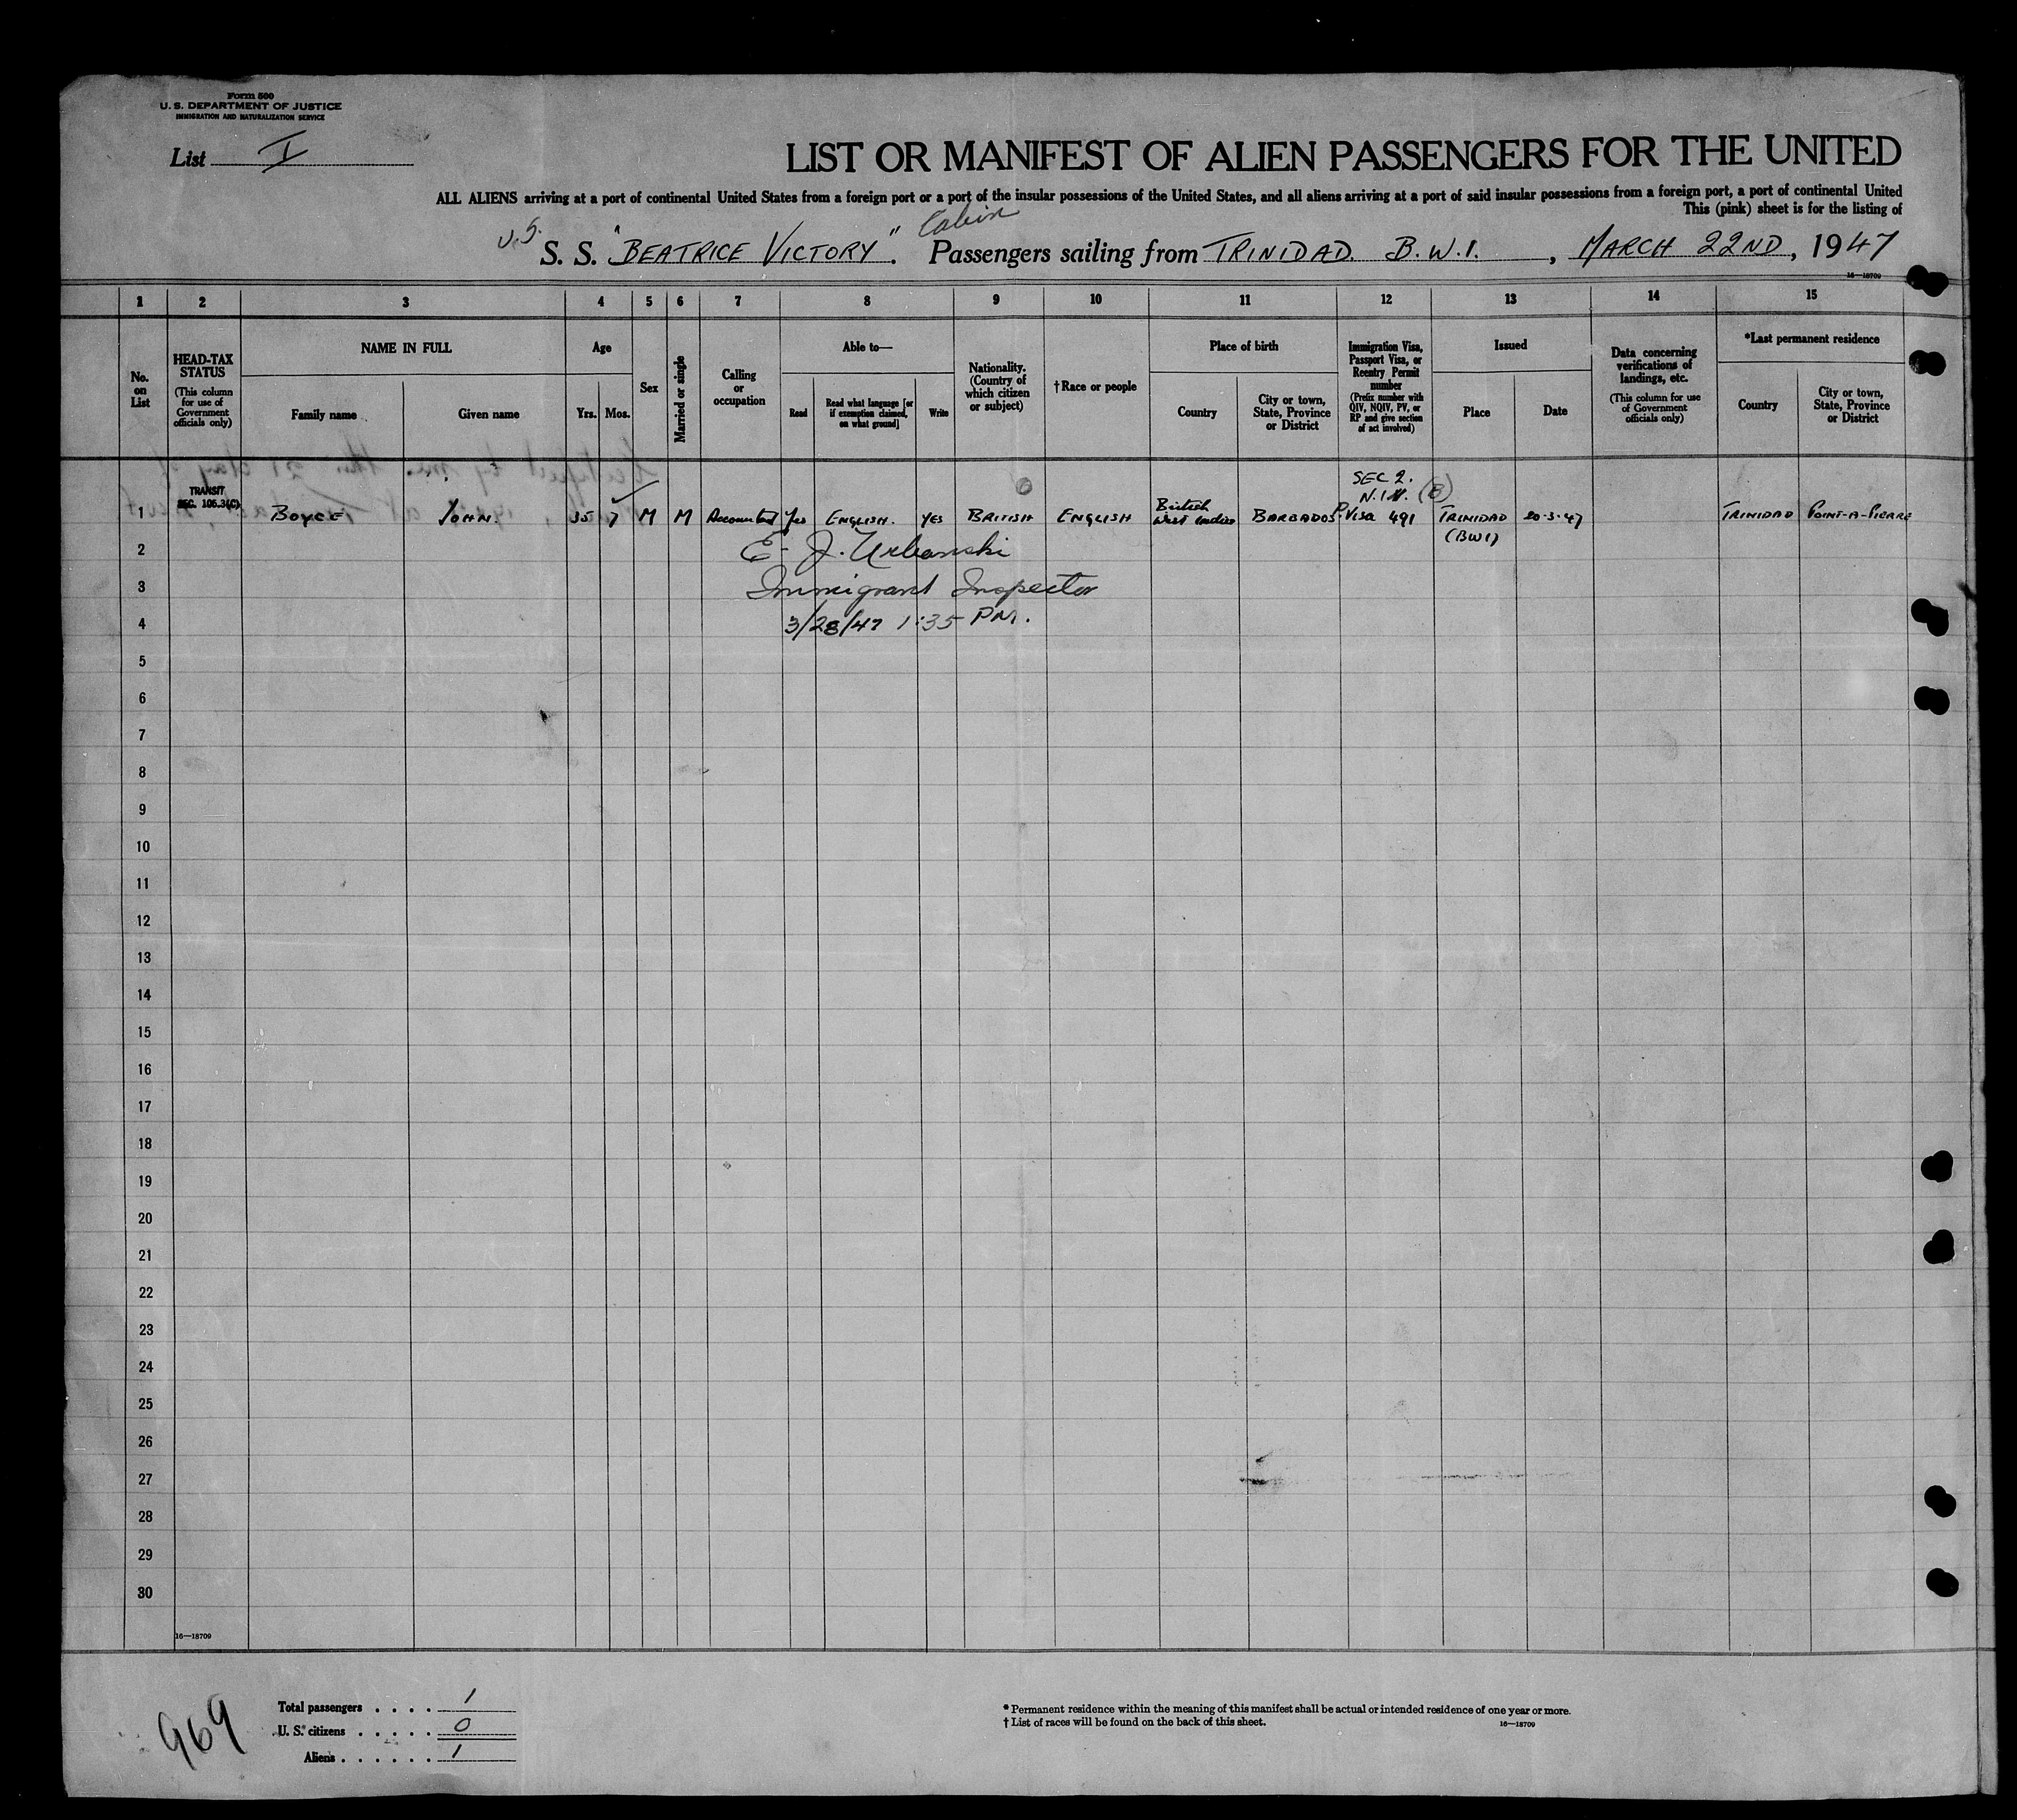 Form 500
U. S. DEPARTMENT OF JUSTICE
IMMIGRATION AND NATURALIZATION SERVICE
List I
LIST OR MANIFEST OF ALIEN PASSENGERS FOR THE UNITED
ALL ALIENS arriving at a port of continental United States from a foreign port or a port of the insular possessions of the United States, and all aliens arriving at a port of said insular possessions from a foreign port, a port of continental United
This (pink) sheet is for the listing of
U.S. S. S. "BEATRICE VICTORY". Cabin Passengers sailing from TRINIDAD. B.W.I., MARCH 22ND, 1947
16—18709
1 2 3 4 5 6 7 8 9 10 11 12 13 14 15
No. on List
HEAD-TAX STATUS (This column for use of Government officials only)
NAME IN FULL
Family name
Given name
Age
Yrs. Mos.
Sex
Married or single
Calling or occupation
Able to—
Read
Read what language [or if exemption claimed, on what ground]
Write
Nationality. (Country of which citizen or subject)
†Race or people
Place of birth
Country
City or town, State, Province or District
Immigration Visa, Passport Visa, or Reentry Permit number (Prefix number with QIV, NQIV, PV, or RP and give section of act involved)
Issued
Place
Date
Data concerning verifications of landings, etc. (This column for use of Government officials only)
*Last permanent residence
Country
City or town, State, Province or District
TRANSIT SEC. 106.3(C)
SEC 2. N.I.V. (B)
1 BOYCE JOHN. 35 7 M M Accountant Yes ENGLISH. YES BRITISH ENGLISH British West Indies BARBADOS P. Visa 491 TRINIDAD (BWI) 20·3·47 TRINIDAD POINT-A-PIERRE
2 E. J. Urbanski
3 Immigrant Inspector
4 3/28/47 1:35 PM.
5
6
7
8
9
10
11
12
13
14
15
16
17
18
19
20
21
22
23
24
25
26
27
28
29
30
16—18709
969
Total passengers . . . . 1
U. S. citizens . . . . . 0
Aliens . . . . . . 1
* Permanent residence within the meaning of this manifest shall be actual or intended residence of one year or more.
† List of races will be found on the back of this sheet.
16—18709